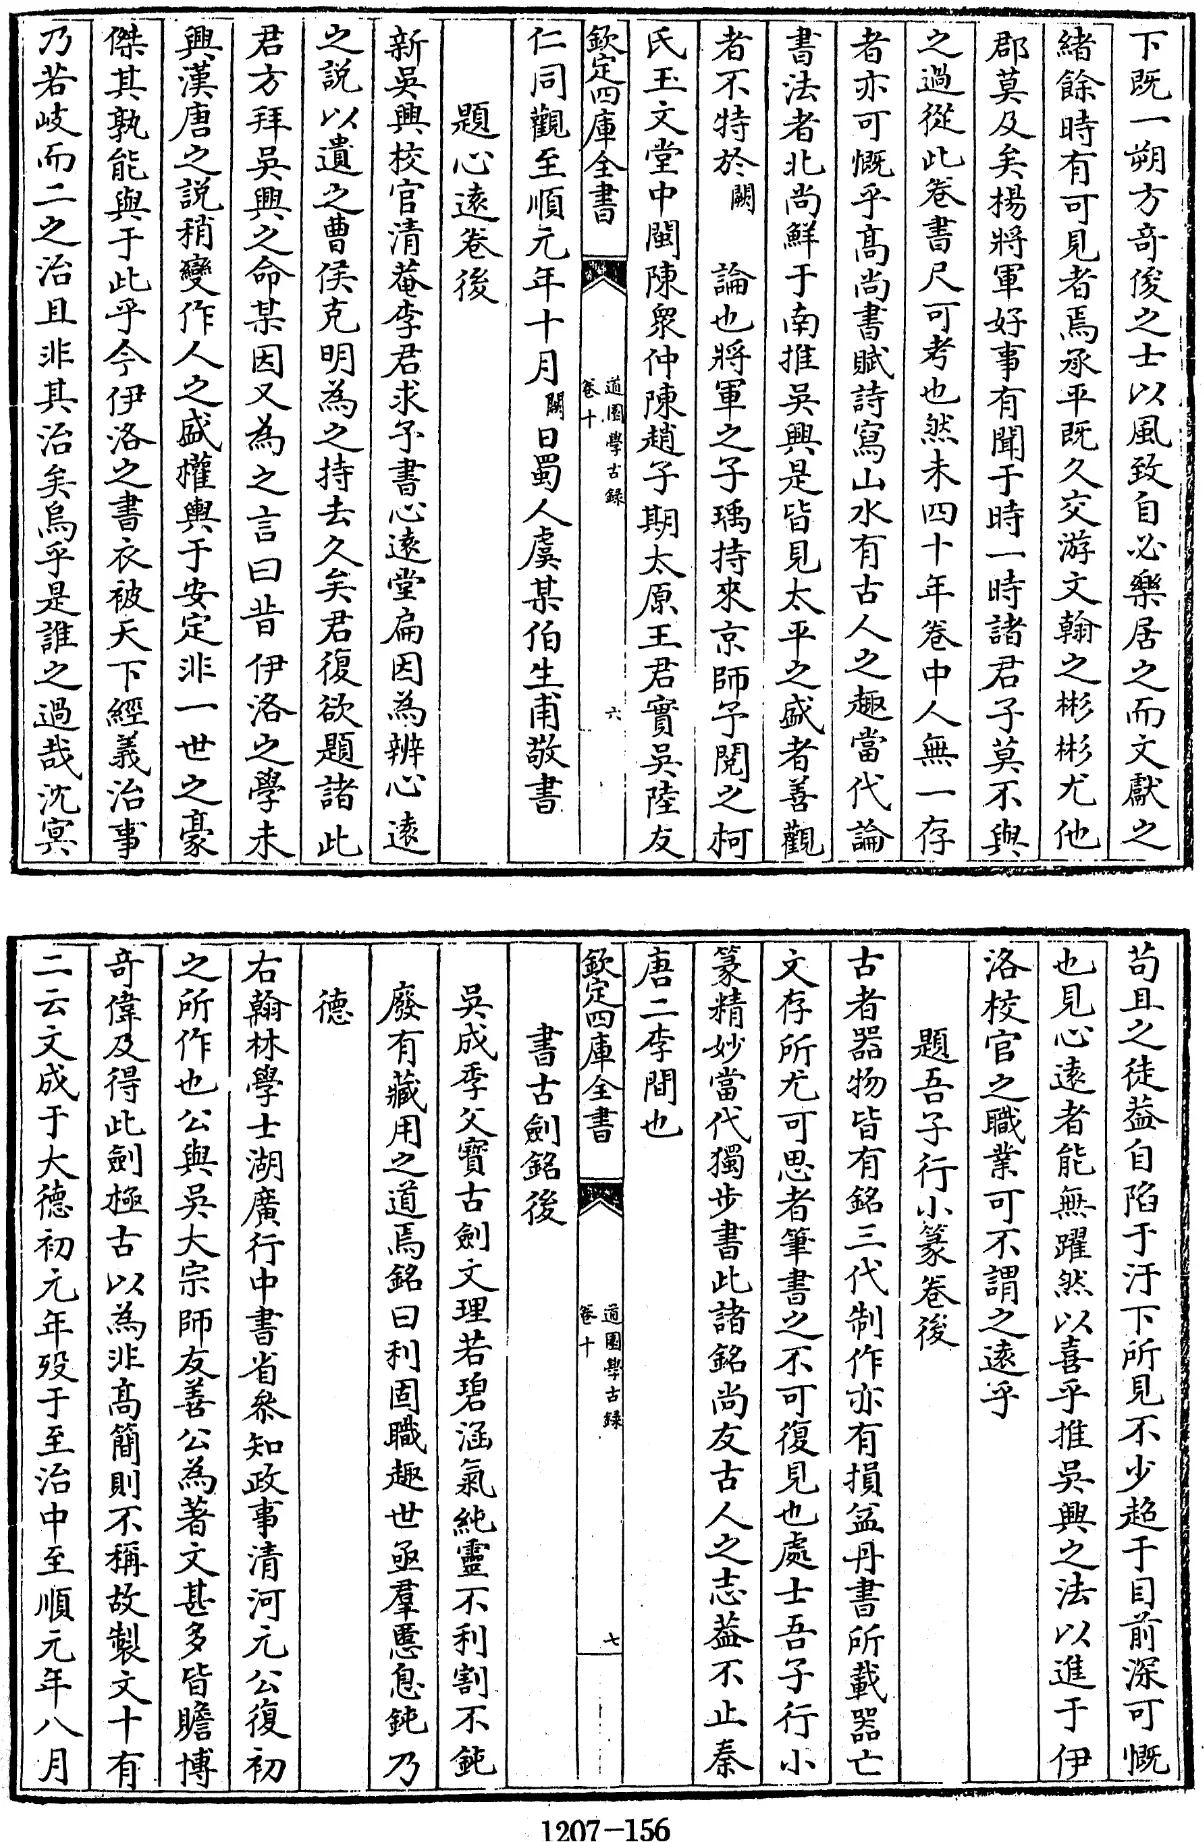 下既一朔方奇俊之士以風致自必樂居之而文獻之
緒餘時有可見者焉承平既久交游文翰之彬彬尤他
郡莫及矣楊將軍好事有聞于時一時諸君子莫不與
之過從此卷書尺可考也然未四十年卷中人無一存
者亦可慨乎髙尚書賦詩寫山水有古人之趣當代論
書法者北尚鮮于南推吳興是皆見太平之盛者善觀
者不特於闕論也將軍之子瑀持來京師予閱之柯
氏玉文堂中閩陳衆仲陳趙子期太原王君實吳陸友
欽定四庫全書
道園學古録
卷十
六
仁同觀至順元年十月闕日蜀人虞某伯生甫敬書
題心逺卷後
新吳興校官清菴李君求予書心逺堂扁因為辨心逺
之説以遺之曹侯克明為之持去久矣君復欲題諸此
君方拜吳興之命某因又為之言曰昔伊洛之學未
興漢唐之説稍變作人之盛權輿于安定非一世之豪
傑其孰能與于此乎今伊洛之書衣被天下經義治事
乃若岐而二之治且非其治矣烏乎是誰之過哉沈冥
苟且之徒葢自陷于汙下所見不少超于目前深可慨
也見心逺者能無躍然以喜乎推吳興之法以進于伊
洛校官之職業可不謂之逺乎
題吾子行小篆卷後
古者器物皆有銘三代制作亦有損益丹書所載器亡
文存所尤可思者筆書之不可復見也處士吾子行小
篆精妙當代獨步書此諸銘尚友古人之志葢不止秦
唐二李間也
欽定四庫全書
道園學古録
卷十
七
書古劍銘後
吳成季父寳古劍文理若碧涵氣純靈不利割不鈍
廢有藏用之道焉銘曰利固職趣世亟羣慝息鈍乃
德
右翰林學士湖廣行中書省叅知政事清河元公復初
之所作也公與吳大宗師友善公為著文甚多皆贍博
奇偉及得此劍極古以為非髙簡則不稱故製文十有
二云文成于大德初元年歿于至治中至順元年八月
1207-156